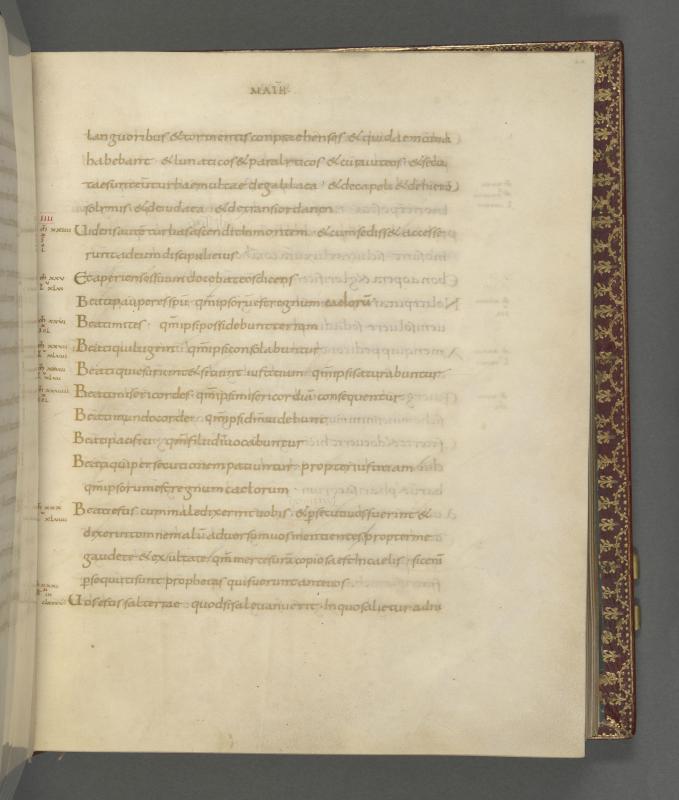 MATH
languoribus & tormentis conprachensos & qui daemonia
habebant & lunaticos & paralyticos & curauit eos & secu
tae sunt eum turbae multae de galilaea & decapoli & de hieró
solimis & de iudaea & de trans iordanen
IIII
Uidens aute turbas ascendit in montem & cum sediss& accesse
runt ad eum discipuli eius
XXV
Et aperiens os suum docebat eos dicens
Beati pauperes spu qm ipsorum est regnum caelorū
Beati mites qm ipsi possidebunt terram
Beati qui lugent qm ipsi consolabuntur
Beati qui esuriunt & sitiunt iustitiam qm ipsi saturabuntur
Beati misericordes qm ipsi misericordiā consequentur
Beati mundo corde qm ipsi dm uidebunt
Beati pacifici qm filii di uocabuntur
Beati qui persecutionem patiuntur propter iustitiam
qm ipsorum est regnum caelorum
XXX
Beati estis cum maledixerint uobis & psecuti uos fuerint &
dixerint omne malū aduersum uos mentientes propter me
gaudete & exultate qm merces ura copiosa est in caelis sic enī
psequuti sunt prophetas qui fuerunt ante uos
Uos estis sal terrae quod si sal euanuerit in quo salietur ad ni